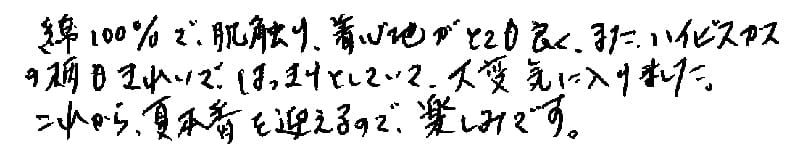 綿100%で、肌触り、着心地がとても良く、また、ハイビスカス
の柄もきれいで、はっきりとしていて、大変気に入りました。
これから、夏本番を迎えるので、楽しみです。